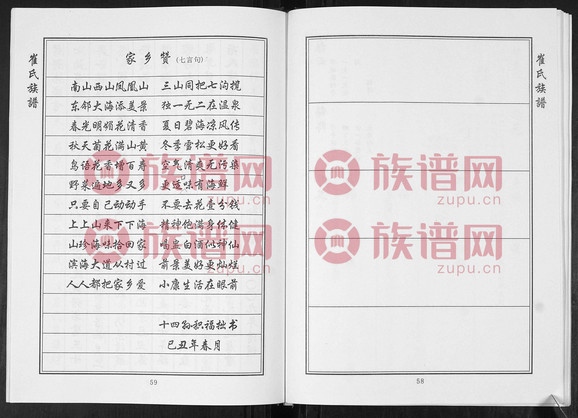 崔氏族譜
家乡赞(七言句)
南山西山凤凰山 三山同把七沟揽
东邻大海添美景 独一无二在温泉
春光明媚花清香 夏日碧海凉风传
秋天菊花满山黄 冬季雪松更好看
鸟语花香增百寿 空气清爽无污染
野菜遍地多又多 更适味有海鲜
只要自己动动手 不要去花壹分钱
上上山来下下海 精神饱满身体健
山珍海味拾回家 喝点白酒似神仙
滨海大道从村过 前景美好更灿烂
人人都把家乡爱 小康生活在眼前
十四孙积福拙书
己丑年春月
59
崔氏族譜
58
族谱网
zupu.cn
族谱网
zupu.cn
族谱网
zupu.cn
族谱网
zupu.cn